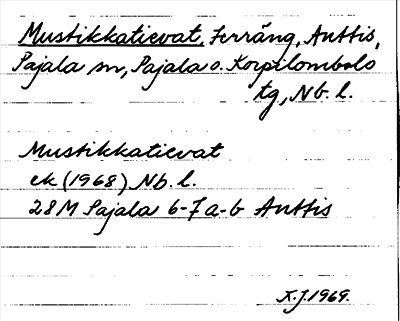 Mustikkatievat, terräng, Anttis,
Pajala sn, Pajala o. Korpilombolo
tg, Nb. l.
Mustikkatievat
ek (1968) Nb. l.
28M Pajala 6-7a-b Anttis
K.J. 1969.